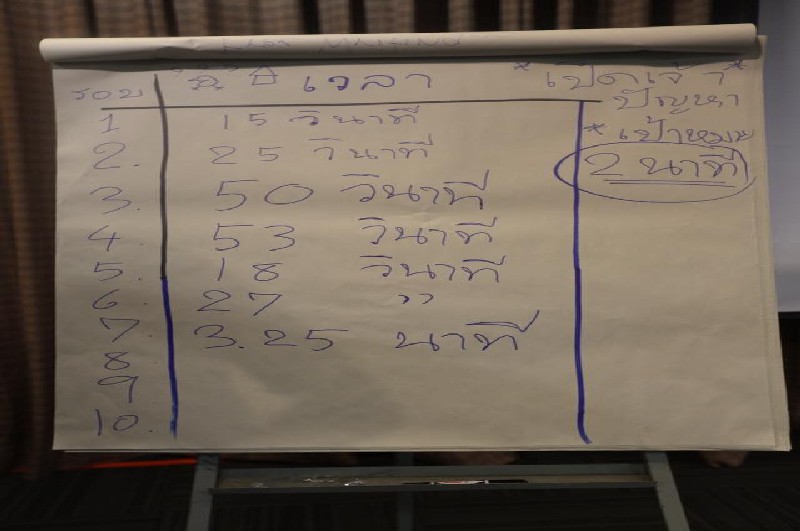 รอบ เวลา
1 15 วินาที
2. 25 วินาที
3. 50 วินาที
4. 53 วินาที
5. 18 วินาที
6. 27 ''
7. 3.25 นาที
8
9
10.
* ปัญหา
* เป้าหมาย
2 นาที